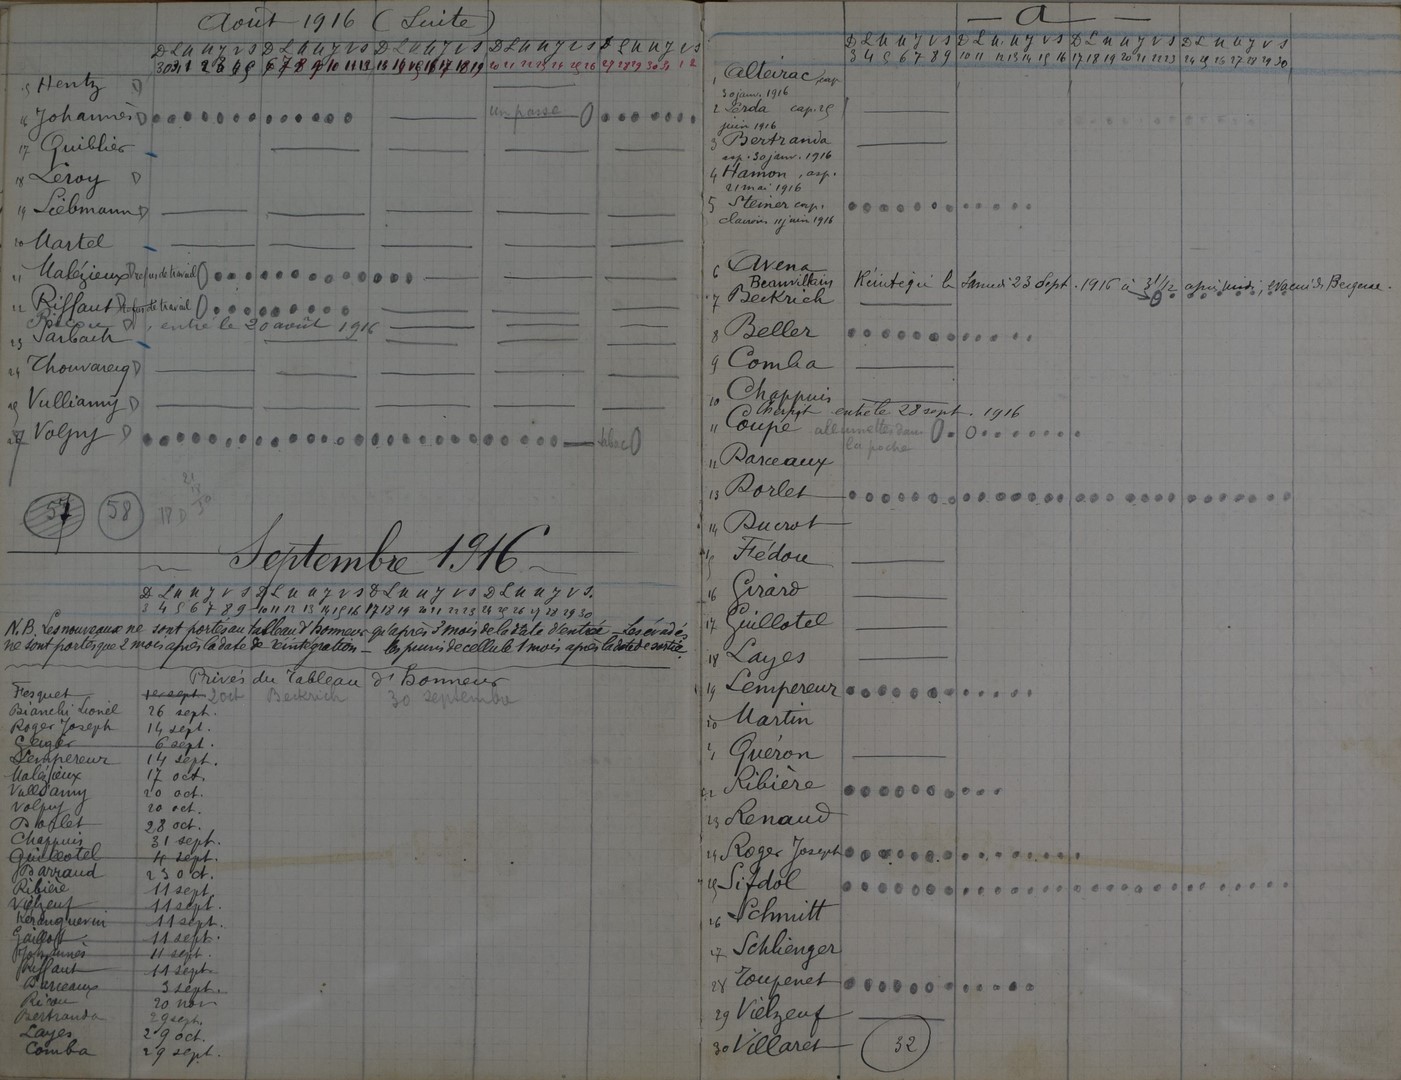 Août 1916 (Suite)
D L M M J V S D L M M J V S D L M M J V S D L M M J V S D L M M J V S
30 31 1 2 3 4 5 6 7 8 9 10 11 12 13 14 15 16 17 18 19 20 21 22 23 24 25 26 27 28 29 30 31 1 2
15 Hentz D
16 Johannès D
17 Quiblier
18 Leroy D
19 Liebmann D
20 Martel
21 Malézieux D refus de travail
22 Riffaut D refus de travail
D, entré le 20 août 1916
23 Sarbach
24 Thouvarecq D
25 Vulliamy D
Volpuy D tabac
57 58
18 D
Septembre 1916
D L M M J V S D L M M J V S D L M M J V S D L M M J V S
3 4 5 6 7 8 9 10 11 12 13 14 15 16 17 18 19 20 21 22 23 24 25 26 27 28 29 30
N.B. Les nouveaux ne sont portés au tableau d'honneur qu'après 3 mois de la date d'entrée - Les évadés
ne sont portés que 2 mois après la date de réintégration - les punis de cellule 1 mois après la date de sortie.
Privés du Tableau d'Honneur
Fesquet 2 oct Beckrich 30 septembre
Bianchi Lionel 26 sept.
Roger Joseph 14 sept.
Geiger 6 sept.
Lempereur 14 sept.
Malézieux 17 oct.
Vulliamy 20 oct.
Volpuy 20 oct.
Dorlet 28 oct.
Chappuis 31 sept.
Guillotel 4 sept.
Barraud 23 oct.
Ribière 11 sept.
Vielzeuf 11 sept.
11 sept.
11 sept.
Johannès 11 sept.
Riffaut 11 sept.
Darceaux 3 sept.
20 nov
Bertranda 29 sept.
Layes 29 oct.
Comba 29 sept.
— A —
D L M M J V S D L M M J V S D L M M J V S D L M M J V S
3 4 5 6 7 8 9 10 11 12 13 14 15 16 17 18 19 20 21 22 23 24 25 26 27 28 29 30
1 Alteirac, cap.
30 janv. 1916
2 Serda cap. 25
juin 1916
3 Bertranda
asp. 30 janv. 1916
4 Hamon, asp.
21 mai 1916
5 Steiner cap.
clairon 11 juin 1916
6 Avena
Beauvillain Réintégré le Samedi 23 Sept. 1916 à 3 1/2 après midi, évacué de Bergerac.
7 Beckrich
8 Beller
9 Comba
10 Chappuis
entré le 28 sept. 1916
11 Coupé allumettes dans
la poche
12 Darceaux
13 Dorlet
14 Ducrot
15 Fédou
16 Girard
17 Guillotel
18 Layes
19 Lempereur
20 Martin
21 Quéron
22 Ribière
23 Renaud
24 Roger Joseph
25 Sifdol
26 Schmitt
27 Schlienger
28 Toupenet
29 Vielzeuf
30 Villaret 32